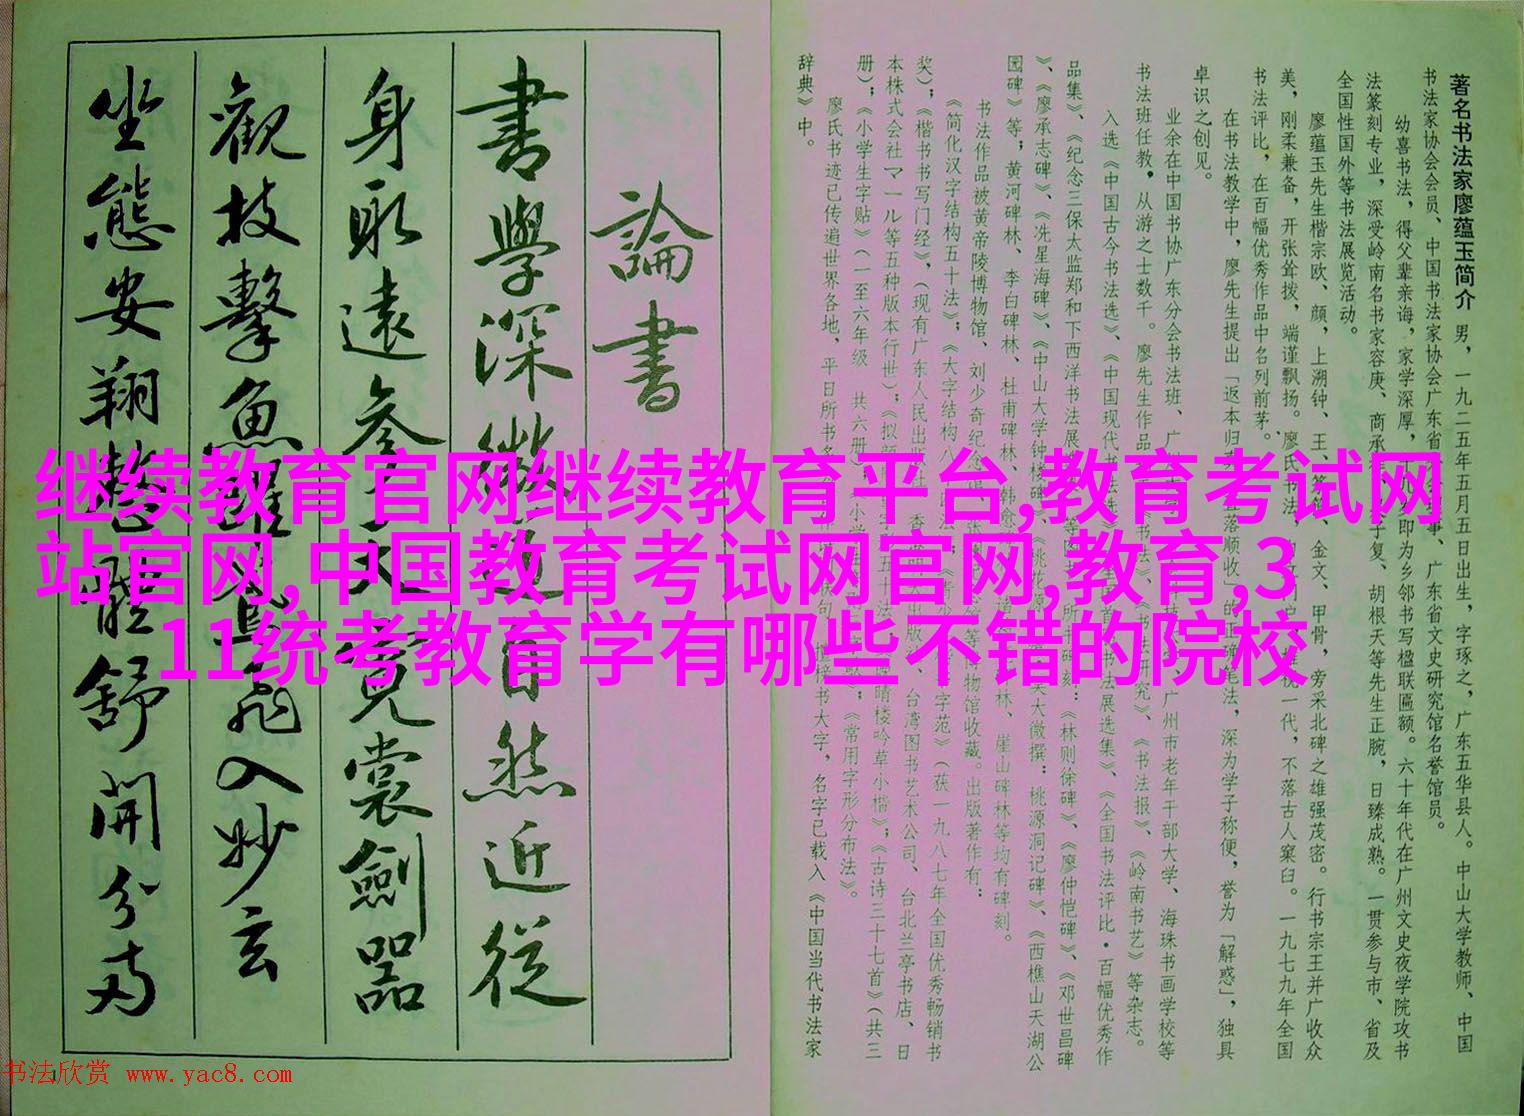 继续教育官网继续教育平台,教育考试网
站官网,中国教育考试网官网,教育,3
11统考教育学有哪些不错的院校
著名书法家廖蕴玉简介 男，一九二五年五月五日出生，字琢之，广东五华县人。中山大学教师、中国
书法家协会会员、中国书法家协会广东省 事、广东省文史研究馆名誉馆员。
幼喜书法，得父辈亲诲，家学深厚， 即为乡邻书写楹联匾额。六十年代在广州文史夜学院攻书
法篆刻专业，深受岭南名书家容庚、商承 子复、胡根天等先生正腕，日臻成熟。一贯参与市、省及
全国性国外等书法展览活动。
廖蕴玉先生楷宗欧、颜，上溯钟、王、 金文、甲骨，旁采北碑之雄强茂密。行书宗王并广收众
美，刚柔兼备，开张耸拨，端谨飘扬。廖氏书法 视一代，不落古人窠臼。一九七九年全国
书法评比，在百幅优秀作品中名列前茅。
在书法教学中，廖先生提出「返本归 落顺收」的正确笔法，深为学子称便，誉为「解惑」，独具
卓识之创见。
业余在中国书协广东分会书法班、广 广州市老年干部大学、海珠书画学校等
书法班任教，从游之士数千。廖先生作品 《书法研究》、《书法报》、《岭南书艺》等杂志。
入选《中国古今书法选》、《中国现代书法选》 书法展选集》、《全国书法评比·百幅优秀作
品集》、《纪念三保太监郑和下西洋书法展 碑刻：《林则徐碑》、《廖仲恺碑》、《邓世昌碑
》、《廖承志碑》、《冼星海碑》、《中山大学钟楼碑》、《桃花源 吴大徵撰：桃源洞记碑》、《西樵山天湖公
园碑》等；黄河碑林、李白碑林、杜甫碑林、韩愈 林、崖山碑林等均有碑刻。
书法作品被黄帝陵博物馆、刘少奇纪念馆 物馆收藏。出版著作有：
《简化汉字结构五十法》；《大字结构八 字范》（获一九八七年全国优秀畅销书
奖）；《楷书书写门经》，（现有广东人民出版社、香 出版、台湾图书艺术公司、台北兰亭书店、日
本株式会社マール等五种版本行世）；《拟题 五十法 晴楼吟草小楷》；《古诗三十七首》（共三
册）；《小学生字贴》（一至六年级 共六册） 《常用字形分布法》。
廖氏书迹已传遍世界各地，平日所书多 榜书大字，名字已载入《中国当代书法家
辞典》中。
論書
書學深微造自然近從
身取遠參 大 覓裳劍器
觀技擊魚躍鳶飛入妙玄
坐態安翔整體舒開分布
书法欣赏 www.yac8.com
1